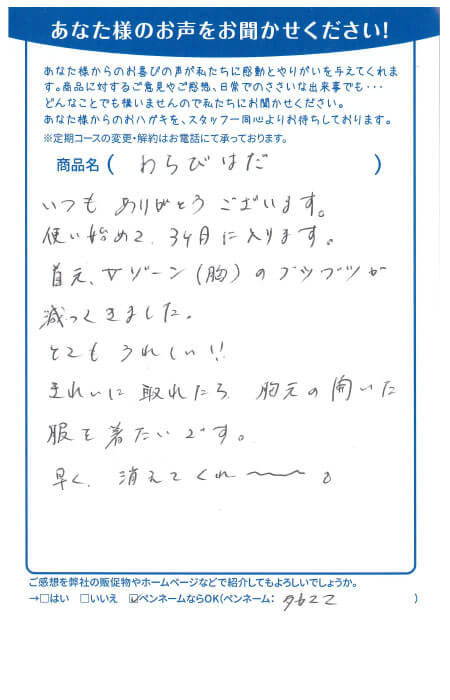 あなた様のお声をお聞かせください!
あなた様からのお喜びの声が私たちに感動とやりがいを与えてくれま
す。商品に対するご意見やご感想、日常でのささいな出来事でも・・・
どんなことでも構いませんので私たちにお聞かせください。
あなた様からのおハガキを、スタッフ一同心よりお待ちしております。
※定期コースの変更・解約はお電話にて承っております。
商品名( わらびはだ )
いつも ありがとう ございます。
使い始めて、3ヶ月に入ります。
首元、Vゾーン(胸)のブツブツが
減ってきました。
とてもうれしい!!
きれいに取れたら、胸元の開いた
服を着たいです。
早く、消えてくれ〜〜〜。
ご感想を弊社の販促物やホームページなどで紹介してもよろしいでしょうか。
→□はい □いいえ ☑ペンネームならOK(ペンネーム: )